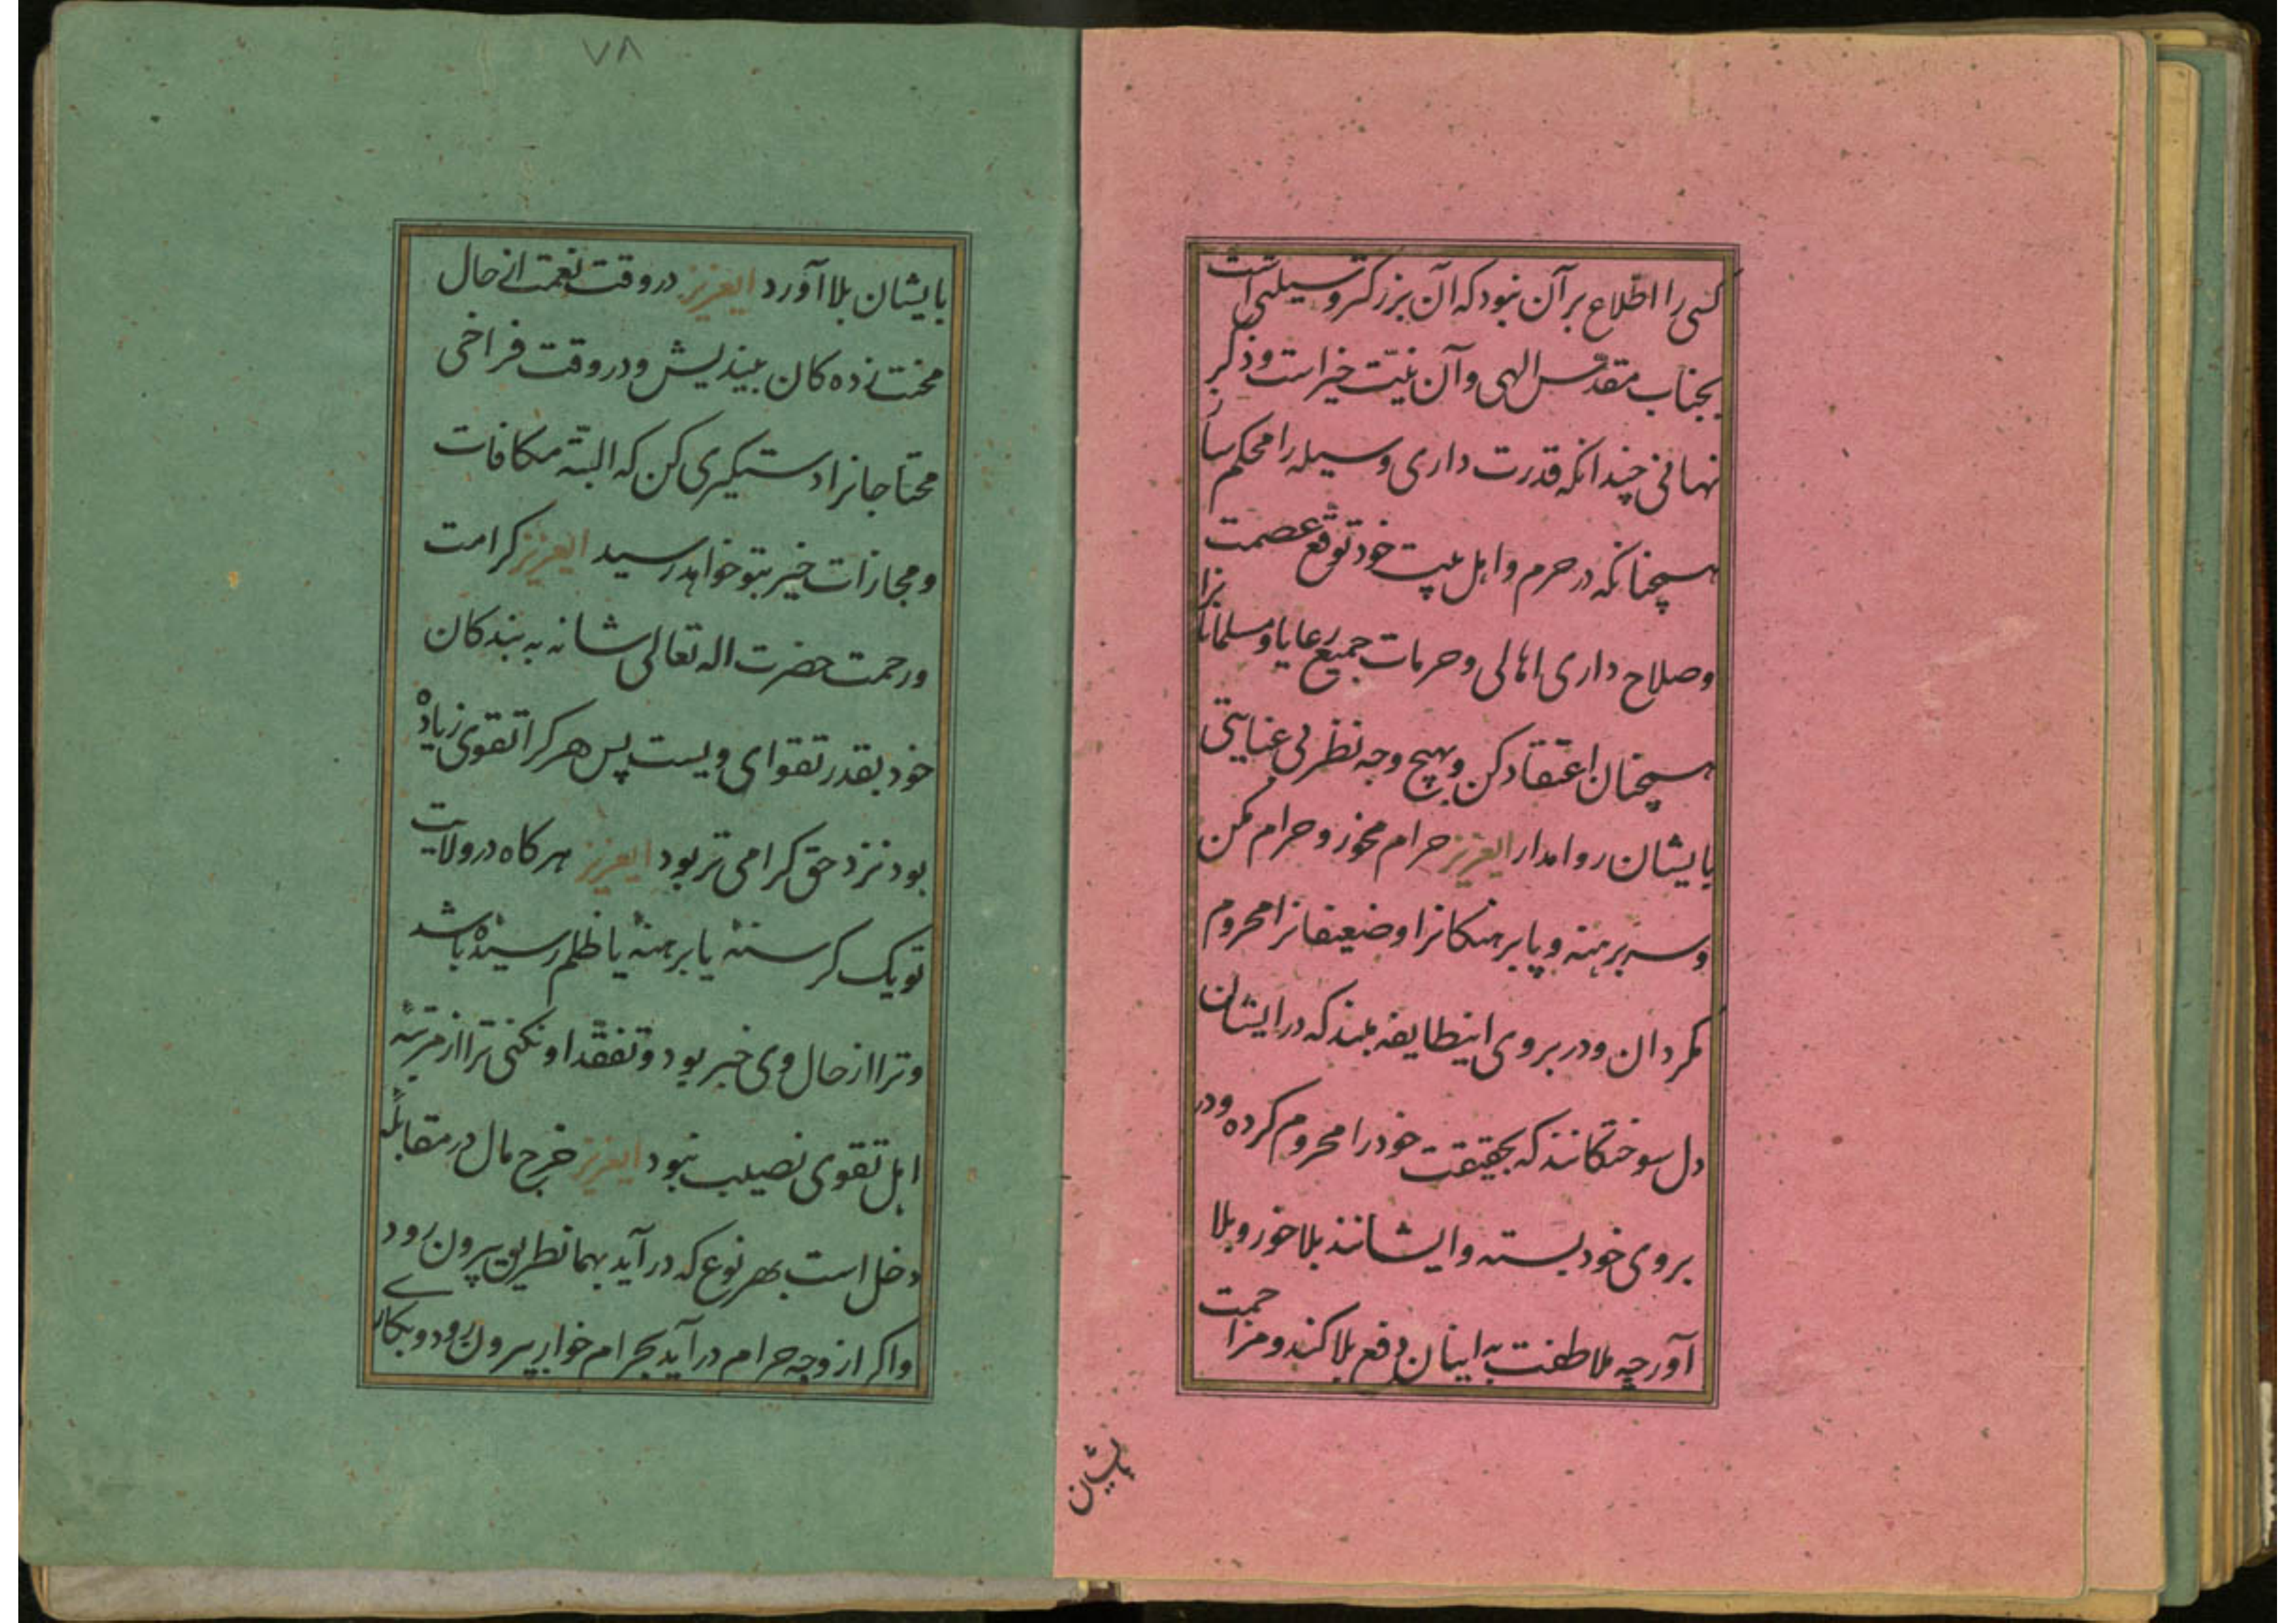 کسی را اطلاع بر آن نبود که آن بزرکتر وسیلتی است
بجناب مقدّس الهی و آن نیّت خیر است و ذکر
نهانی چندانکه قدرت داری وسیله را محکم ساز
همچنانکه در حرم و اهل بیت خود توقع عصمت
و صلاح داری اهالی و حرمات جمیع رعایا و مسلمانانرا
همچنان اعتقاد کن و بهیچ وجه نظر بی عنایتی
بایشان روا مدار ایعزیز حرام مخور و حرام مکن
و سر برهنه و پا برهنکانرا و ضعیفانرا محروم
مکردان و در بروی اینطایفه مبند که در ایشان
دل سوختکانند که بحقیقت خود را محروم کرده و در
بروی خود بسته و ایشانند بلا خور و بلا
آور چه ملاطفت به اینان دفع بلا کند و مزاحمت
بایشان
۷۸
بایشان بلا آورد ایعزیز در وقت نعمت از حال
محنت زده کان بیندیش و در وقت فراخی
محتاجانرا دستکیری کن که البتّه مکافات
و مجازات خیر بتو خواهد رسید ایعزیز کرامت
و رحمت حضرت اله تعالی شانه به بندکان
خود بقدر تقوای ویست پس هر کرا تقوی زیاده
بود نزد حق کرامی تر بود ایعزیز هر کاه در ولایت
تو یک کرسنهٔ یا برهنهٔ یا ظلم رسیدهٔ باشد
و ترا از حال وی خبر بود و تفقّد او نکنی ترا از مرتبهٔ
اهل تقوی نصیب نبود ایعزیز خرج مال در مقابلهٔ
دخل است بهر نوع که در آید بهمانطریق بیرون رود
و اکر از وجه حرام در آید بحرام خوار بیرون رود و بکاری